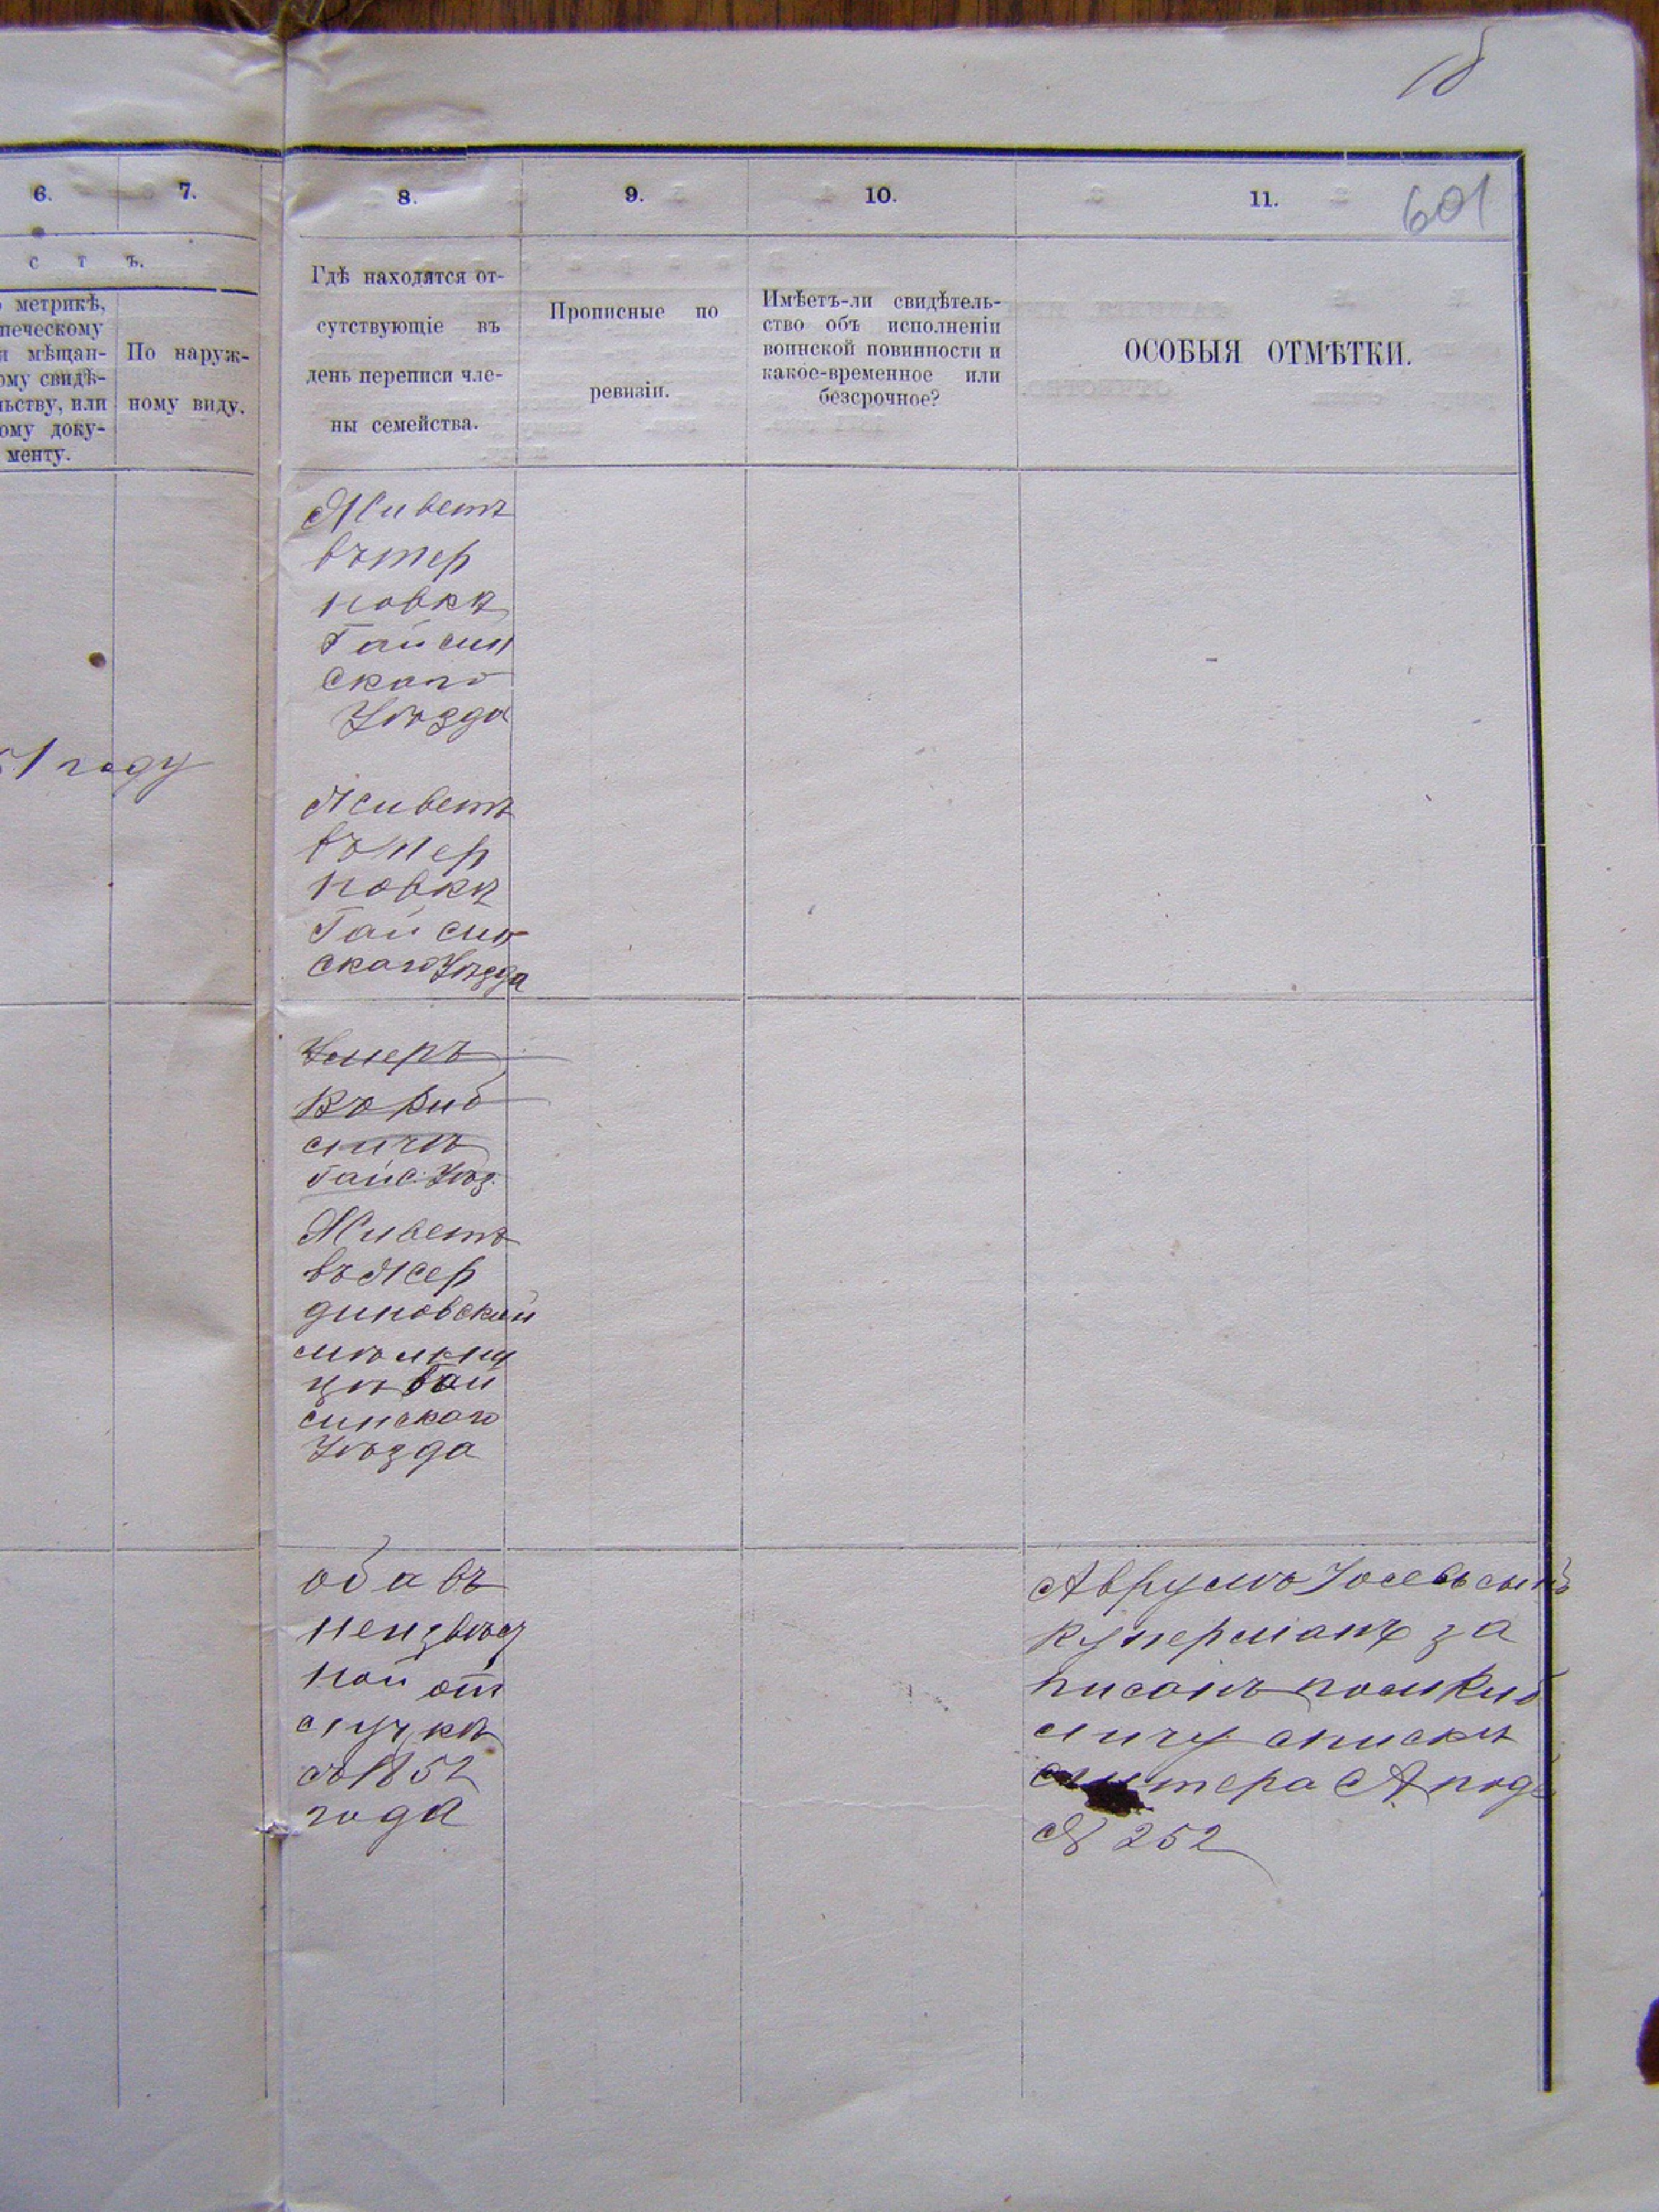 16
6. 7. 8. 9. 10. 11.
601
с т ъ.
метрикѣ,
печескому
мѣщан-
ому свидѣ-
льству, или
ому доку-
менту.
По наруж-
ному виду.
Гдѣ находятся от-
сутствующіе въ
день переписи чле-
ны семейства.
Прописные по
ревизіи.
Имѣетъ-ли свидѣтель-
ство объ исполненіи
воинской повинности и
какое-временное или
безсрочное?
ОСОБЫЯ ОТМѢТКИ.
51 году
Живетъ
въ Тер
новкѣ
Гайсин
скаго
Уѣзда
Живетъ
въ Тер
новкѣ
Гайсин
скаго Уѣзда
Умеръ
въ Киб
личѣ
Гайс. Уѣз.
Живетъ
въ Жер
диновской
мѣльни
цѣ Гай
синскаго
Уѣзда
оба въ
неизвѣст
ной от
лучкѣ
съ 1852
года
Аврумъ Іосевъ сынъ
Куперманъ за
писанъ по м Киб
личу списки
литера А. подъ
№ 252